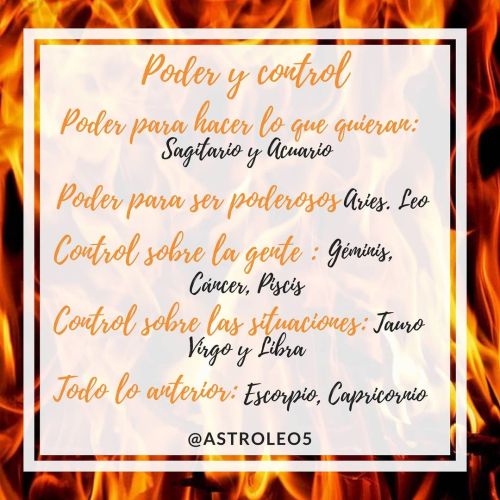 Poder y control
Poder para hacer lo que quieran:
Sagitario y Acuario
Poder para ser poderosos Aries. Leo
Control sobre la gente : Géminis,
Cáncer, Piscis
Control sobre las situaciones: Tauro
Virgo y Libra
Todo lo anterior: Escorpio, Capricornio
@ASTROLEO5